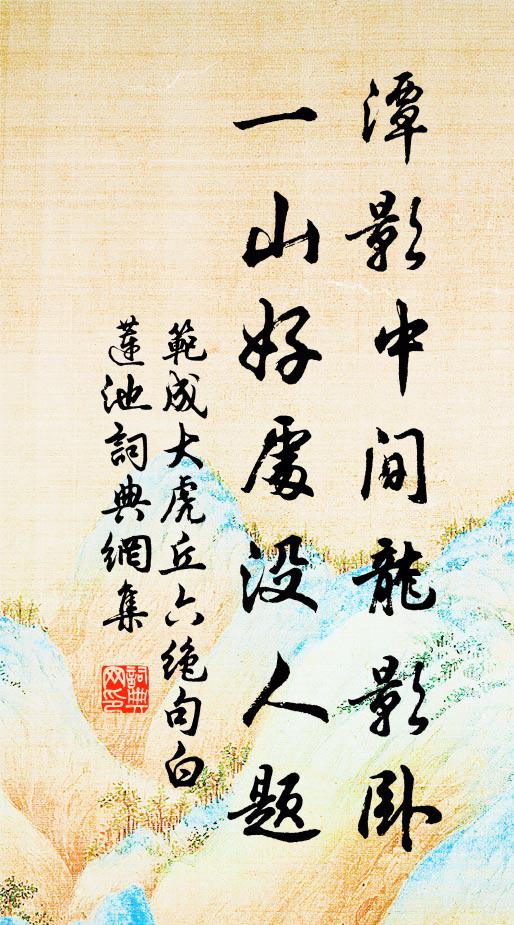 潭影中间龍影卧
一山好處没人题
範成大虎丘六绝句白
蓮池詞典網集
詞典网印